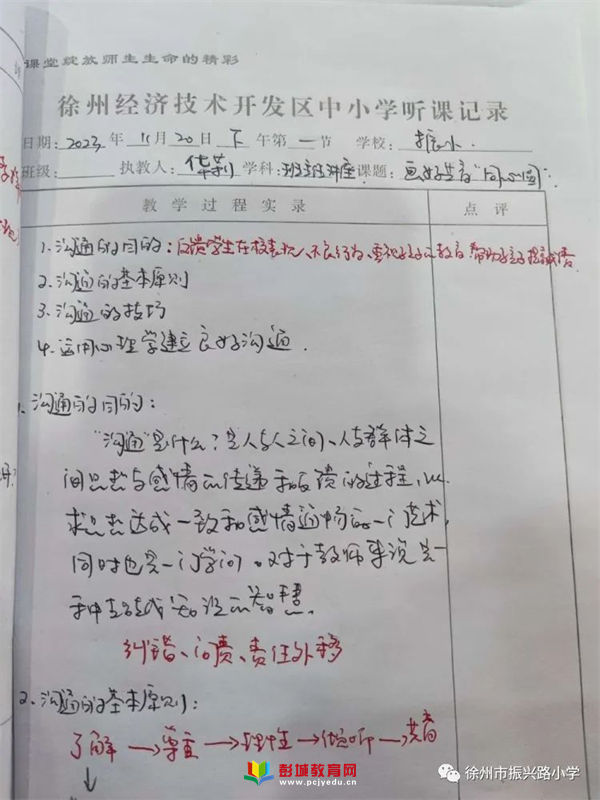 课堂绽放师生生命的精彩
徐州经济技术开发区中小学听课记录
日期: 2023 年 11 月 20 日 下 午第 一 节 学校: 振小.
班级: 执教人: 华莉 学科: 讲座 课题: 画好 "同心圆".
教学过程实录 点评
1.沟通的目的: 反馈学生在校表现、不良行为、
2.沟通的基本原则
3.沟通的技巧
4.运用心理学建立良好沟通.
1.沟通的目的:
"沟通"是什么?是人与人之间、人与群体之
间思想与感情的传递和反馈的过程,以
求思想达成一致和感情通畅的一门艺术,
同时也是一门学问。对于教师来说是一
种 的智慧.
纠错、问责、责任外移
2.沟通的基本原则:
了解→尊重→理性→倾听→共育
↓
彭城教育网
www.pcjyedu.cn
徐州市振兴路小学